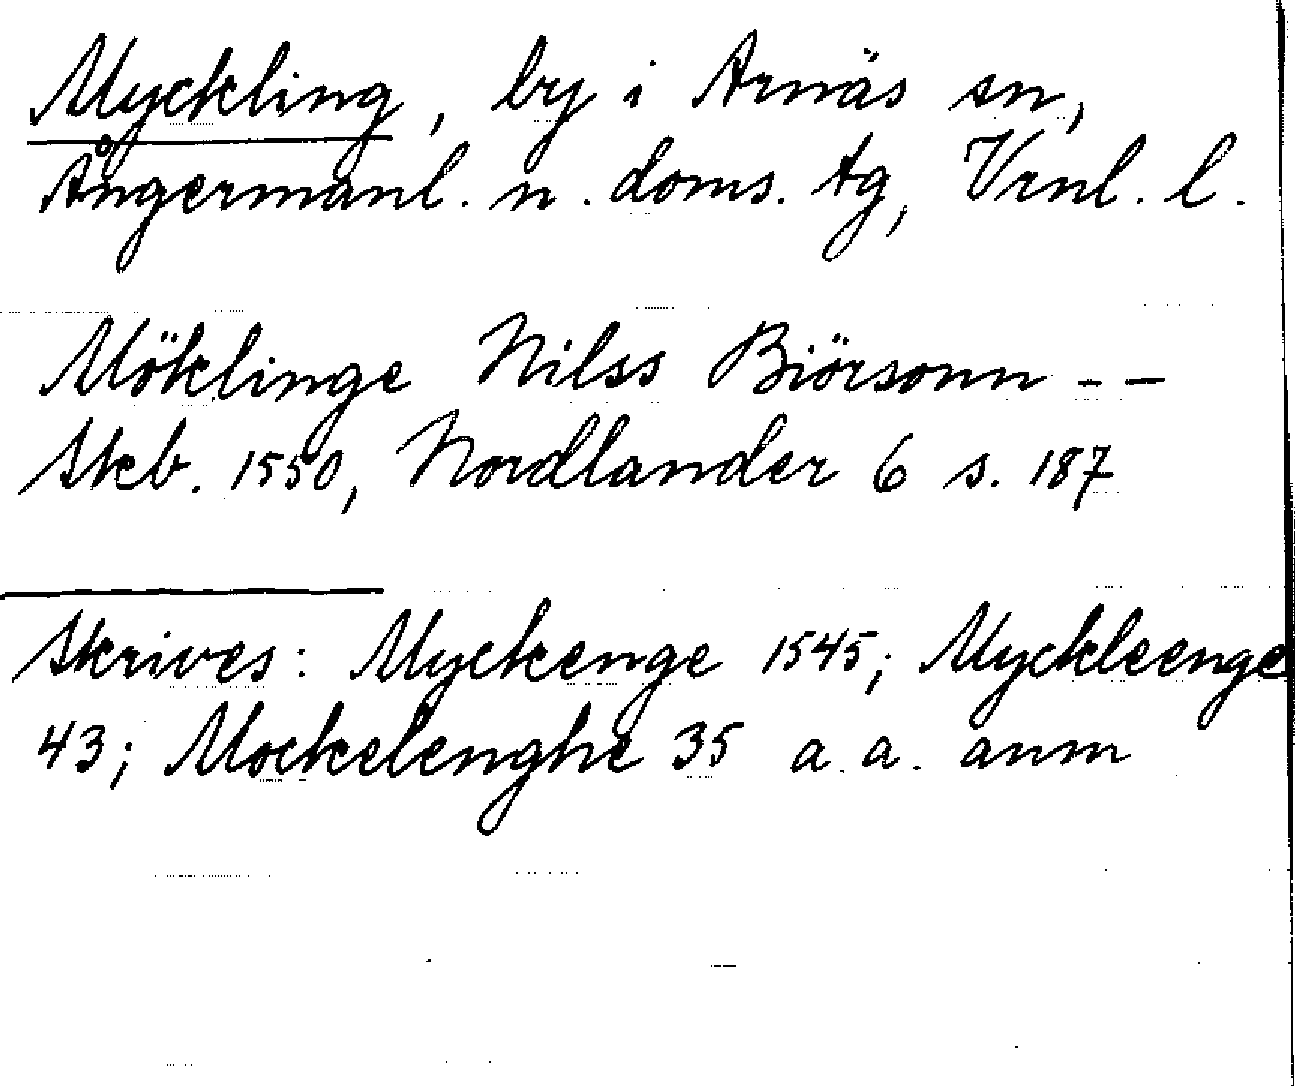 Myckling, by i Arnäs sn,
Ångermanl. n. doms. tg, Vrnl. l.
Möklinge Nilss Biörsonn - -
Skb. 1550, Nordlander 6 s. 187
Skrives: Myckenge 1545; Myckleenge
43; Mockelenghe 35 a. a. anm